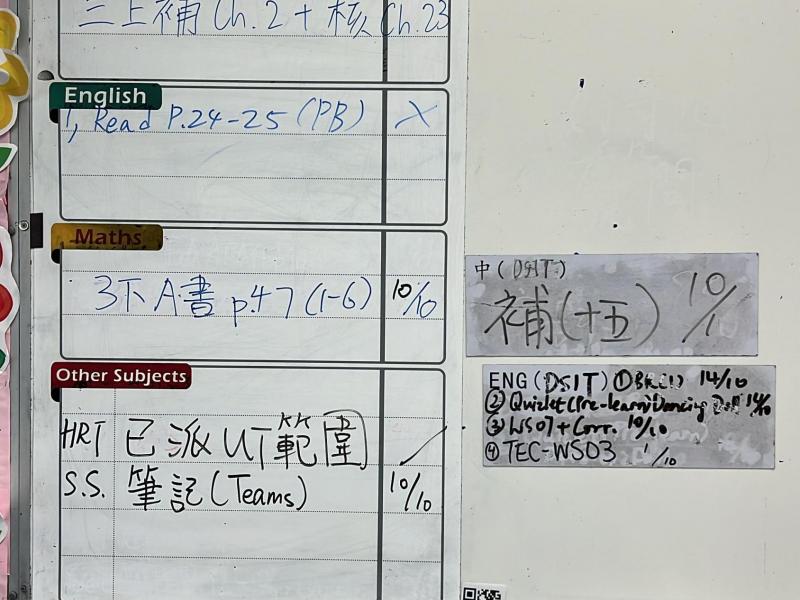 三上補 Ch.2 + 核 Ch.23
English
1, Read P.24-25 (PB) X
Maths
3下A書 p.47 (1-6) 10/10
Other Subjects
HRT 已派UT範圍 /
S.S. 筆記(Teams) 10/10
中(DSIT)
補(十五) 10/1
ENG (DSIT) ① BK(1) 14/10
② Quizlet (Pre-learn) Dancing 14/10
③ WS07 + Corr. 10/10
④ TEC-WS03 1/10